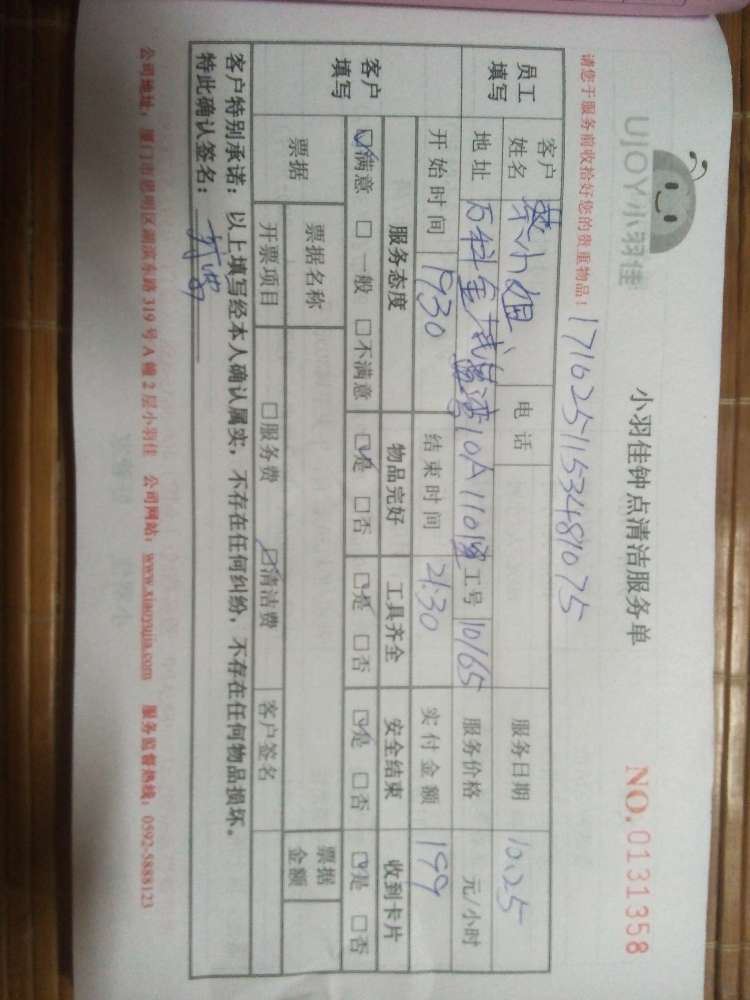 UJOY小羽佳
小羽佳钟点清洁服务单
NO. 0131358
请您于服务前收拾好您的贵重物品!
17162511534481075
员工填写 客户姓名 蔡小姐 电话 服务日期 10.25
地址 万科金域蓝湾10A1101 工号 10165 服务价格 元/小时
开始时间 1930 结束时间 21:30 实付金额 199
客户填写 服务态度 物品完好 工具齐全 安全结束 收到卡片
☑满意 □一般 □不满意 ☑是 □否 ☑是 □否 ☑是 □否 ☑是 □否
票据 票据名称 票据金额
开票项目 □服务费 ☑清洁费 客户签名
客户特别承诺:以上填写经本人确认属实,不存在任何纠纷,不存在任何物品损坏。
特此确认签名:
公司地址:厦门市思明区湖滨东路319号A幢2层小羽佳 公司网站:www.xiaoyujia.com 服务监督热线:0592-5888123